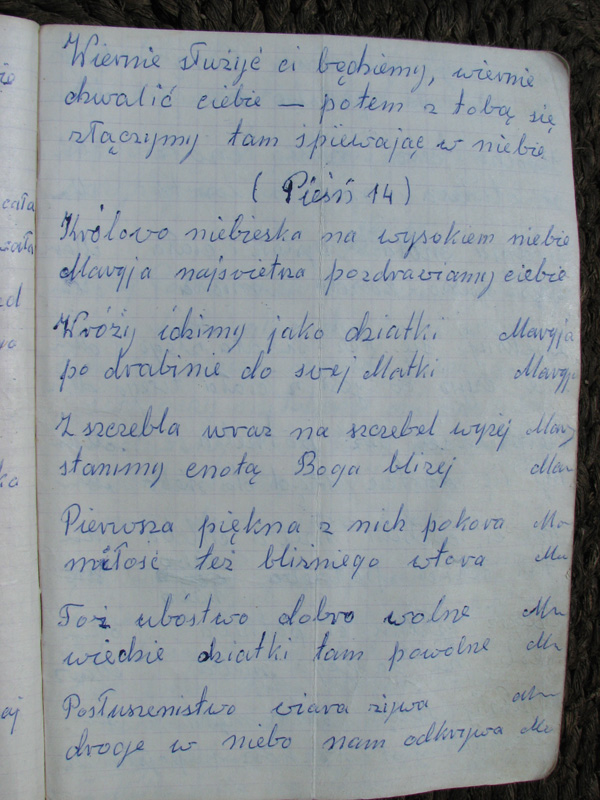 Wiernie służyć ci będziemy, wiernie
chwalić ciebie — potem z tobą się
złączymy tam śpiewając w niebie
( Pieśń 14 )
Królowo niebieska na wysokiem niebie
Maryja najświetsza pozdrawiamy ciebie
Wróży idzimy jako dziatki Maryja
po drabinie do swej Matki Maryja
Z szczebla wraz na szczebel wyżej Mary
stanimy cnotą Boga bliżej Mar
Pierwsza piękna z nich pokora Ma
miłość też bliźniego wtora Ma
Toż ubóstwo dobro wolne Ma
wiedzie dziatki tam powolne Ma
Posłuszenistwo wiara żywa Ma
droge w niebo nam odkrywa Ma